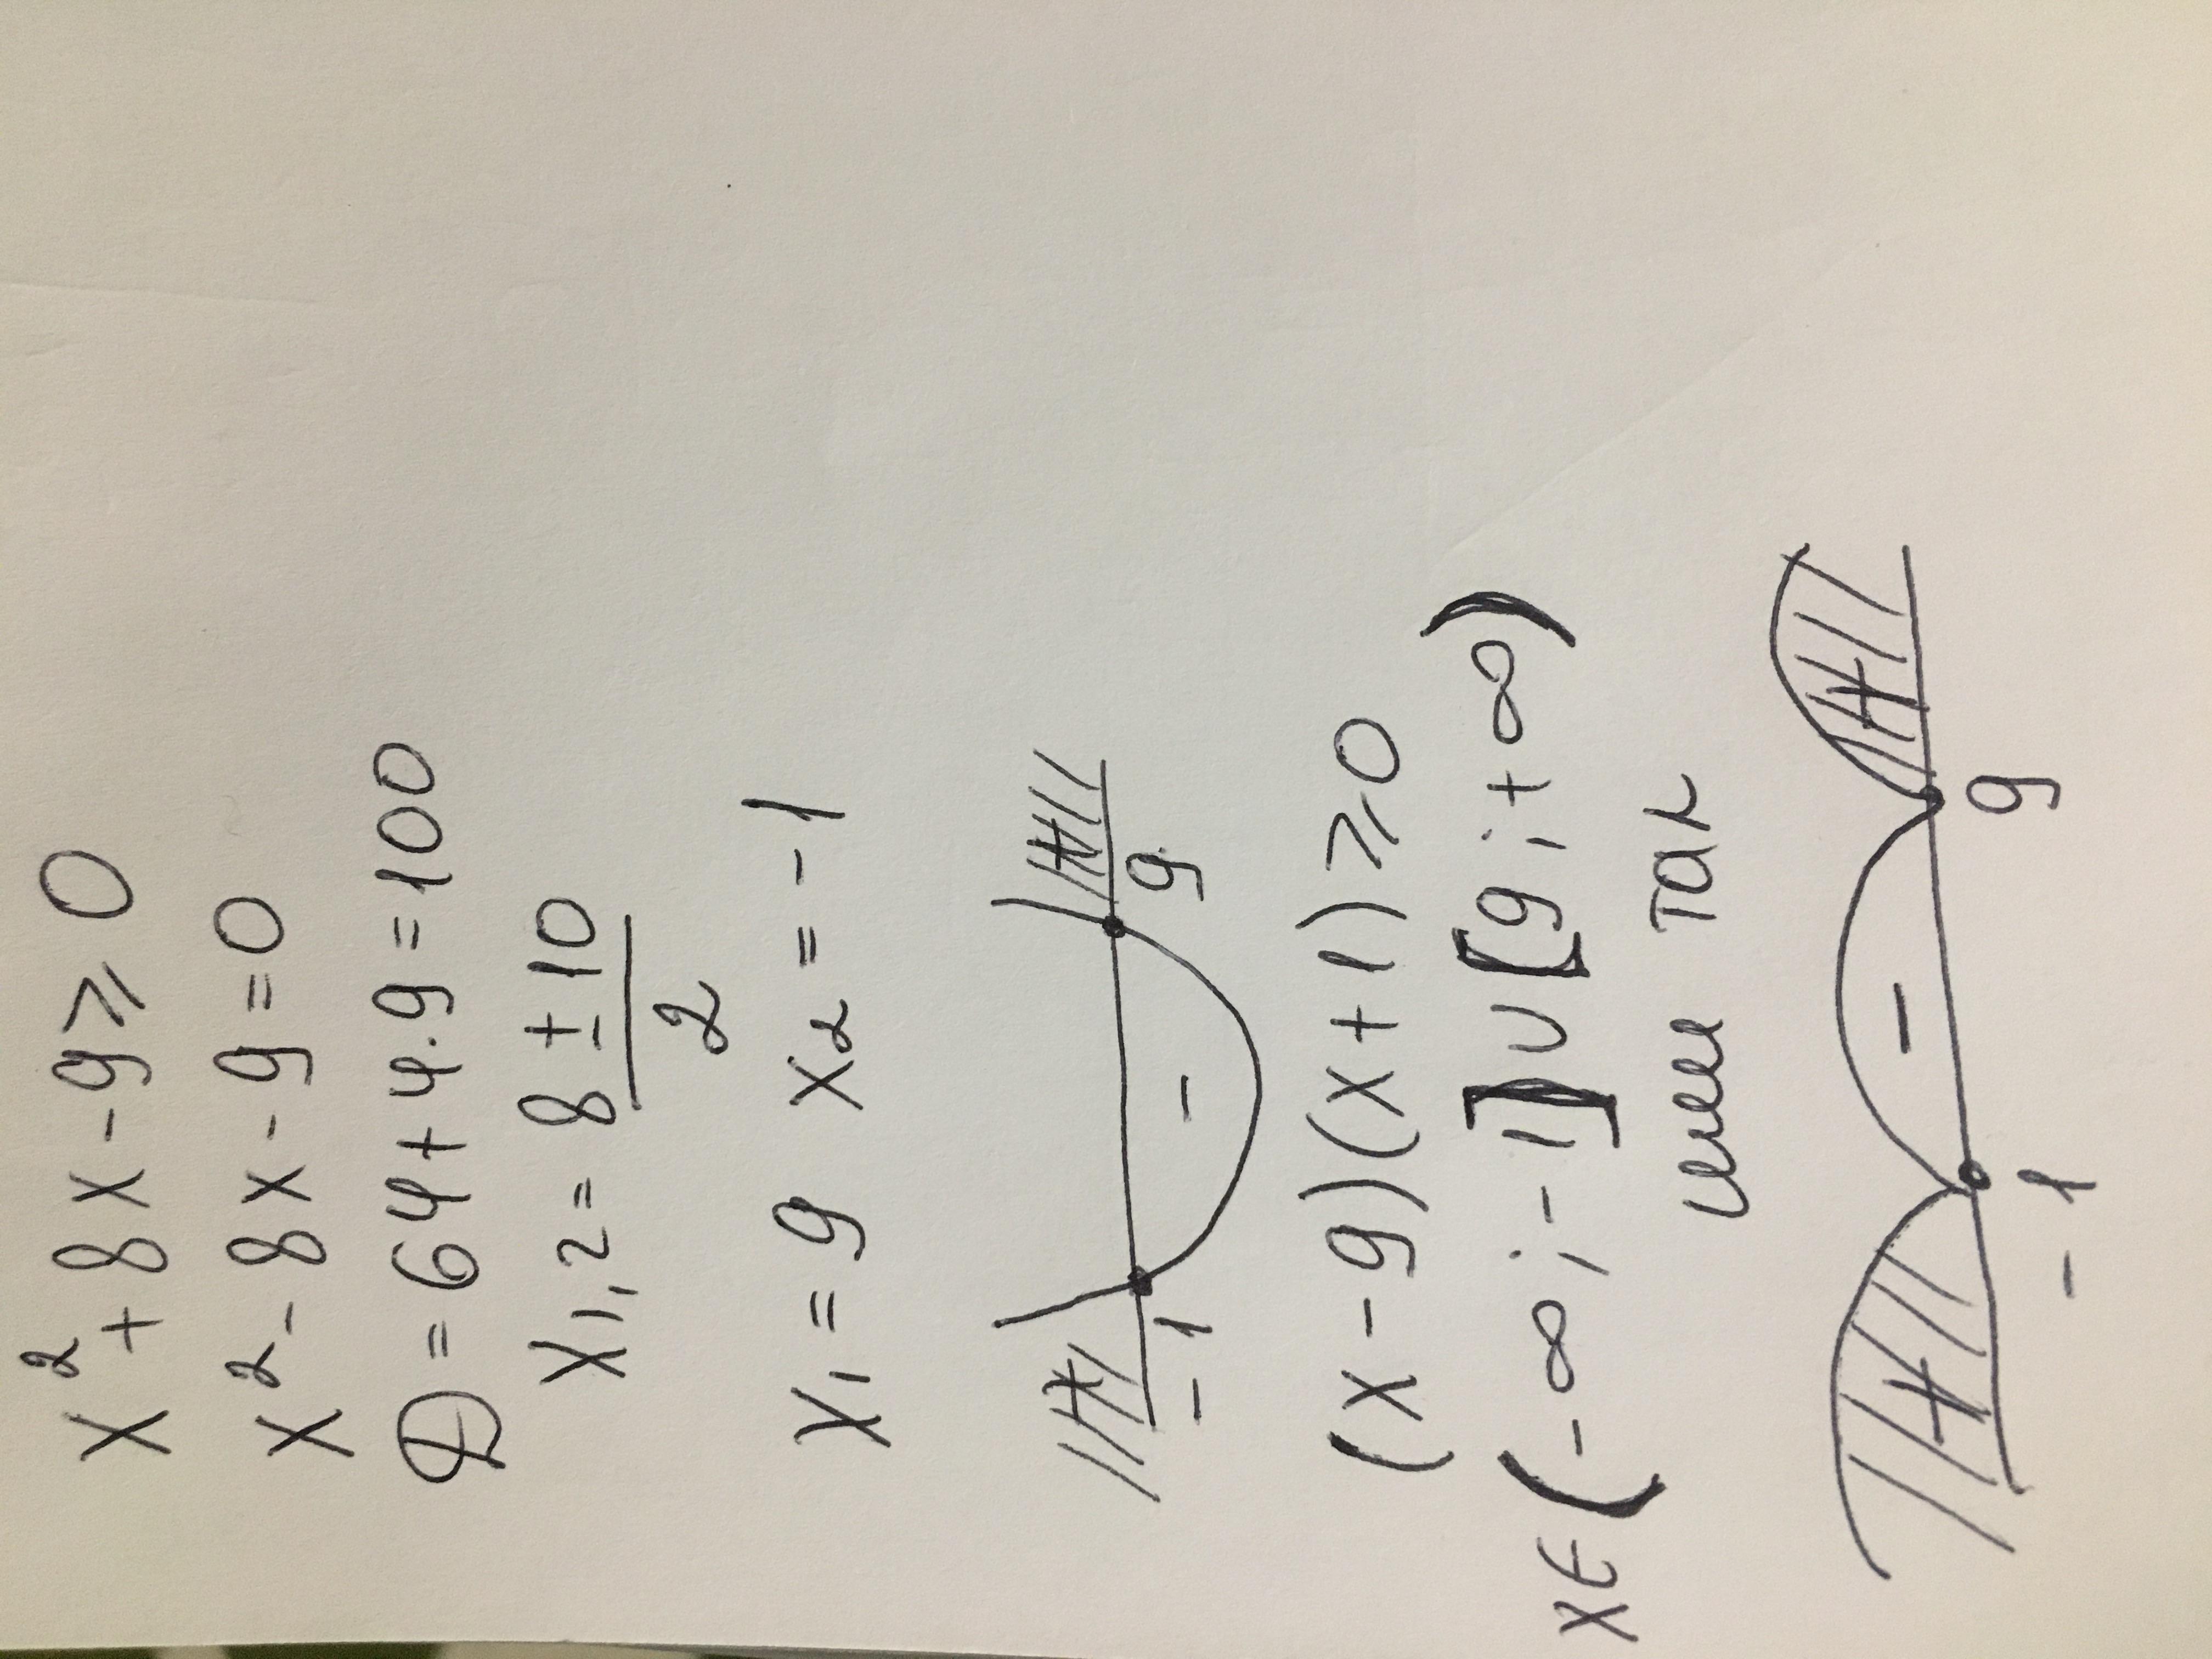 x² + 8x - 9 ⩾ 0
x² - 8x - 9 = 0
D = 64 + 4·9 = 100
x₁,₂ = 8 ± 10
2
x₁ = 9 x₂ = -1
+ +
-1 - 9
(x - 9)(x + 1) ⩾ 0
x ∈ (-∞; -1] ∪ [9; +∞)
или так
+ - +
-1 9